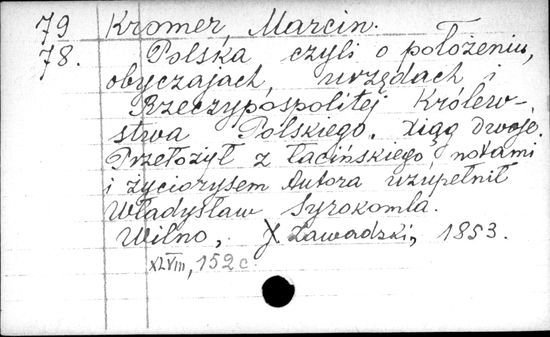 79 Kromer, Marcin.
78. Polska czyli o położeniu,
obyczajach, urzędach i
Rzeczypospolitej Królew-
stwa Polskiego. xiąg dwoje.
Przełożył z łacińskiego, notami
i życiorysem Autora uzupełnił
Władysław Syrokomla.
Wilno, J Zawadzki, 1853.
XLVIII, 152 c.